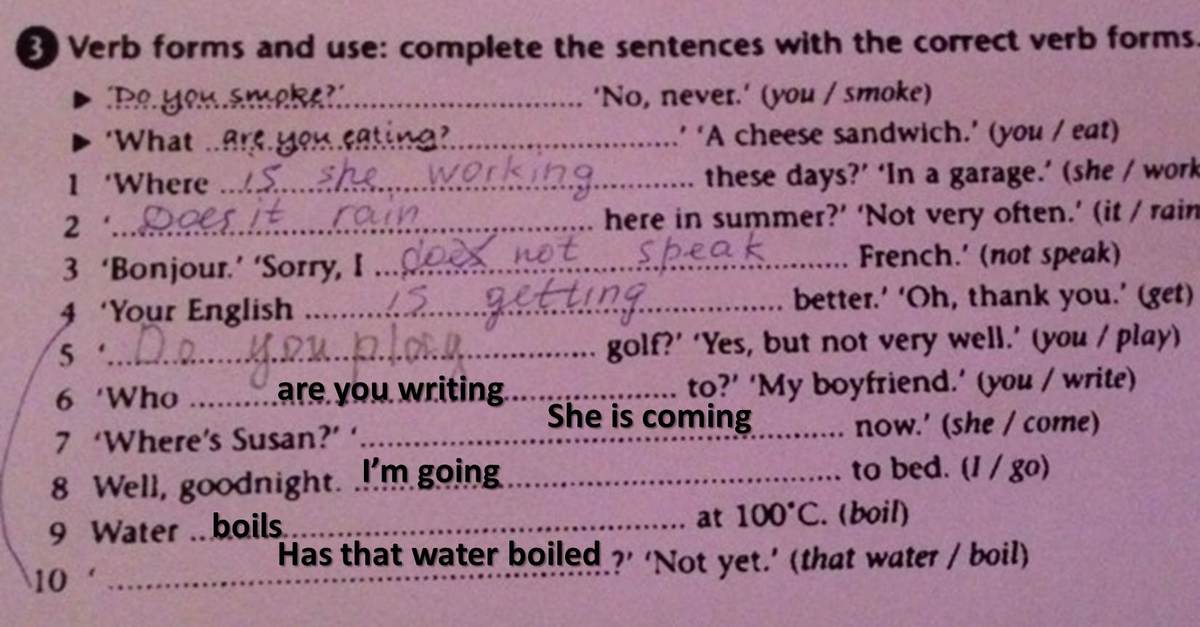 3 Verb forms and use: complete the sentences with the correct verb forms.
► 'Do you smoke?' 'No, never.' (you / smoke)
► 'What are you eating? ' 'A cheese sandwich.' (you / eat)
1 'Where is she working these days?' 'In a garage.' (she / work
2 ' Does it rain here in summer?' 'Not very often.' (it / rain
3 'Bonjour.' 'Sorry, I does not speak French.' (not speak)
4 'Your English is getting better.' 'Oh, thank you.' (get)
5 ' Do you play golf?' 'Yes, but not very well.' (you / play)
6 'Who are you writing to?' 'My boyfriend.' (you / write)
7 'Where's Susan?' ' She is coming now.' (she / come)
8 Well, goodnight. I'm going to bed. (I / go)
9 Water boils at 100°C. (boil)
10 ' Has that water boiled ?' 'Not yet.' (that water / boil)